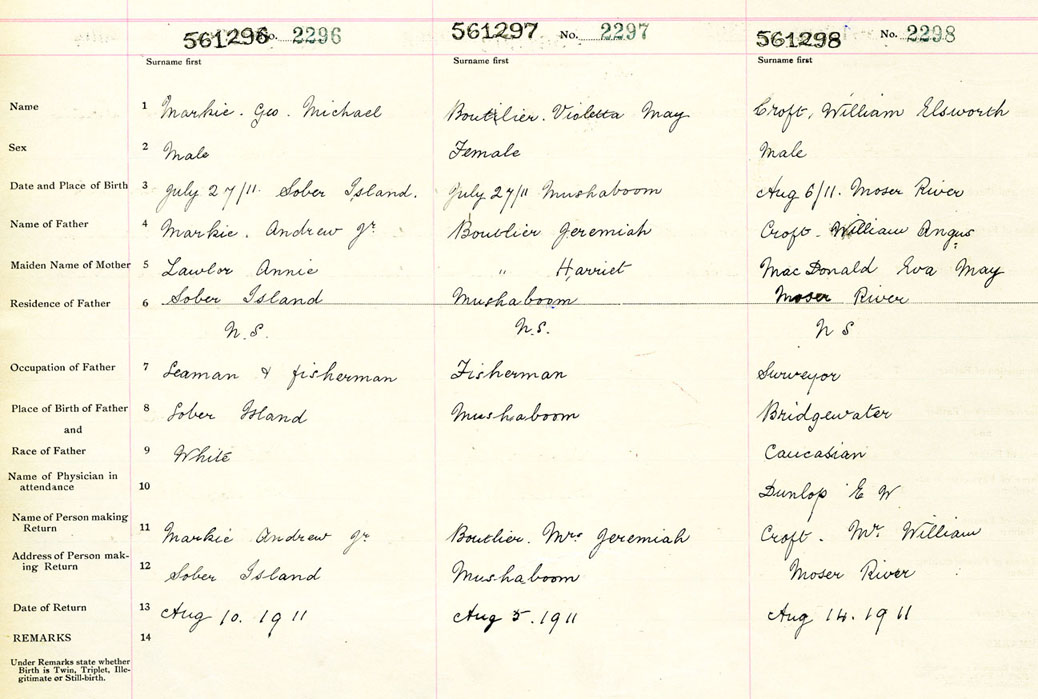 561296 No. 2296 561297 No. 2297 561298 No. 2298
Surname first Surname first Surname first
Name 1 Markie. Geo. Michael Boutilier. Violetta May Croft, William Elsworth
Sex 2 Male Female Male
Date and Place of Birth 3 July 27/11. Sober Island. July 27/11 Mushaboom Aug 6/11. Moser River
Name of Father 4 Markie. Andrew Jr. Boutlier Jeremiah Croft. William Angus
Maiden Name of Mother 5 Lawlor Annie " Harriet MacDonald Eva May
Residence of Father 6 Sober Island Mushaboom Moser River
N.S. N.S. N S
Occupation of Father 7 Seaman & fisherman Fisherman Surveyor
Place of Birth of Father 8 Sober Island Mushaboom Bridgewater
and
Race of Father 9 White Caucasian
Name of Physician in
attendance 10 Dunlop E W
Name of Person making
Return 11 Markie Andrew Jr Boutlier. Mrs Jeremiah Croft. Mr. William
Address of Person mak-
ing Return 12 Sober Island Mushaboom Moser River
Date of Return 13 Aug 10. 1911 Aug 5. 1911 Aug 14. 1911
REMARKS 14
Under Remarks state whether
Birth is Twin, Triplet, Ille-
gitimate or Still-birth.